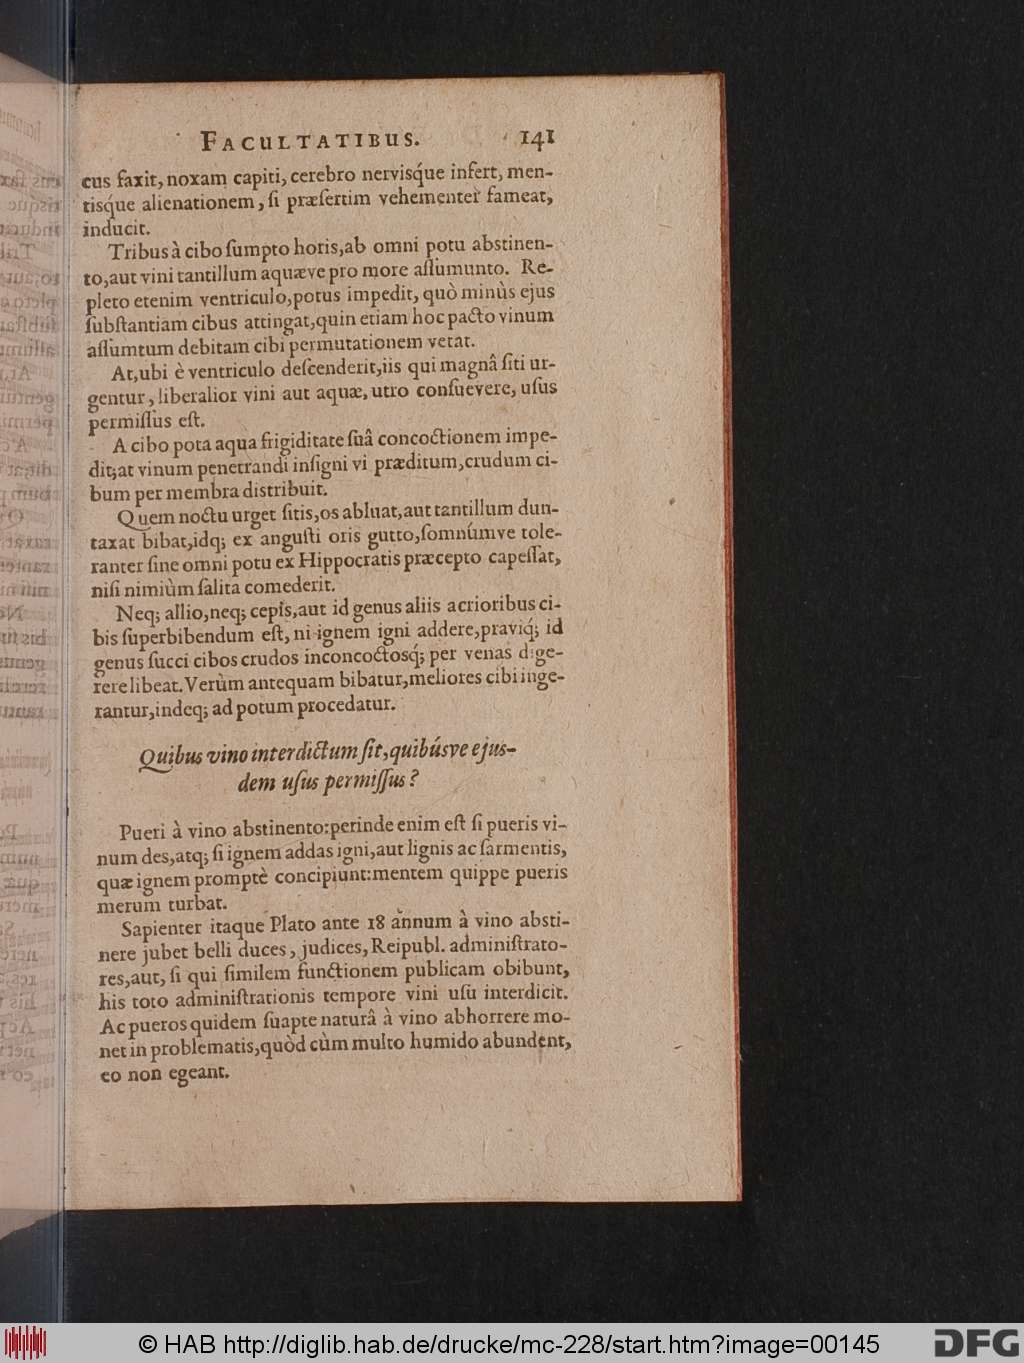 FACULTATIBUS. 141
cus faxit, noxam capiti, cerebro nervisq́ue infert, men-
tisq́ue alienationem, ſi præſertim vehementer fameat,
inducit.
Tribus à cibo ſumpto horis, ab omni potu abstinen-
to, aut vini tantillum aquæve pro more aſſumunto. Re-
pleto etenim ventriculo, potus impedit, quò minùs ejus
ſubſtantiam cibus attingat, quin etiam hoc pacto vinum
aſſumtum debitam cibi permutationem vetat.
At, ubi è ventriculo deſcenderit, iis qui magnâ ſiti ur-
gentur, liberalior vini aut aquæ, utro conſuevere, uſus
permiſſus eſt.
A cibo pota aqua frigiditate ſuâ concoctionem impe-
dit; at vinum penetrandi inſigni vi præditum, crudum ci-
bum per membra distribuit.
Quem noctu urget ſitis, os abluat, aut tantillum dun-
taxat bibat, idq; ex anguſti oris gutto, ſomnúmve tole-
ranter ſine omni potu ex Hippocratis præcepto capeſſat,
niſi nimiùm ſalita comederit.
Neq; allio, neq; cepis, aut id genus aliis acrioribus ci-
bis ſuperbibendum eſt, ni ignem igni addere, praviq́; id
genus ſucci cibos crudos inconcoctosq́; per venas dige-
rere libeat. Verùm antequam bibatur, meliores cibi inge-
rantur, indeq; ad potum procedatur.
Quibus vino interdictum ſit, quibúsve ejus-
dem uſus permiſſus?
Pueri à vino abstinento: perinde enim eſt ſi pueris vi-
num des, atq; ſi ignem addas igni, aut lignis ac ſarmentis,
quæ ignem promptè concipiunt: mentem quippe pueris
merum turbat.
Sapienter itaque Plato ante 18 annum à vino absti-
nere jubet belli duces, judices, Reipubl. adminiſtrato-
res, aut, ſi qui ſimilem functionem publicam obibunt,
his toto adminiſtrationis tempore vini uſu interdicit.
Ac pueros quidem ſuapte naturâ à vino abhorrere mo-
net in problematis, quòd cùm multo humido abundent,
eo non egeant.
© HAB http://diglib.hab.de/drucke/mc-228/start.htm?image=00145
DFG